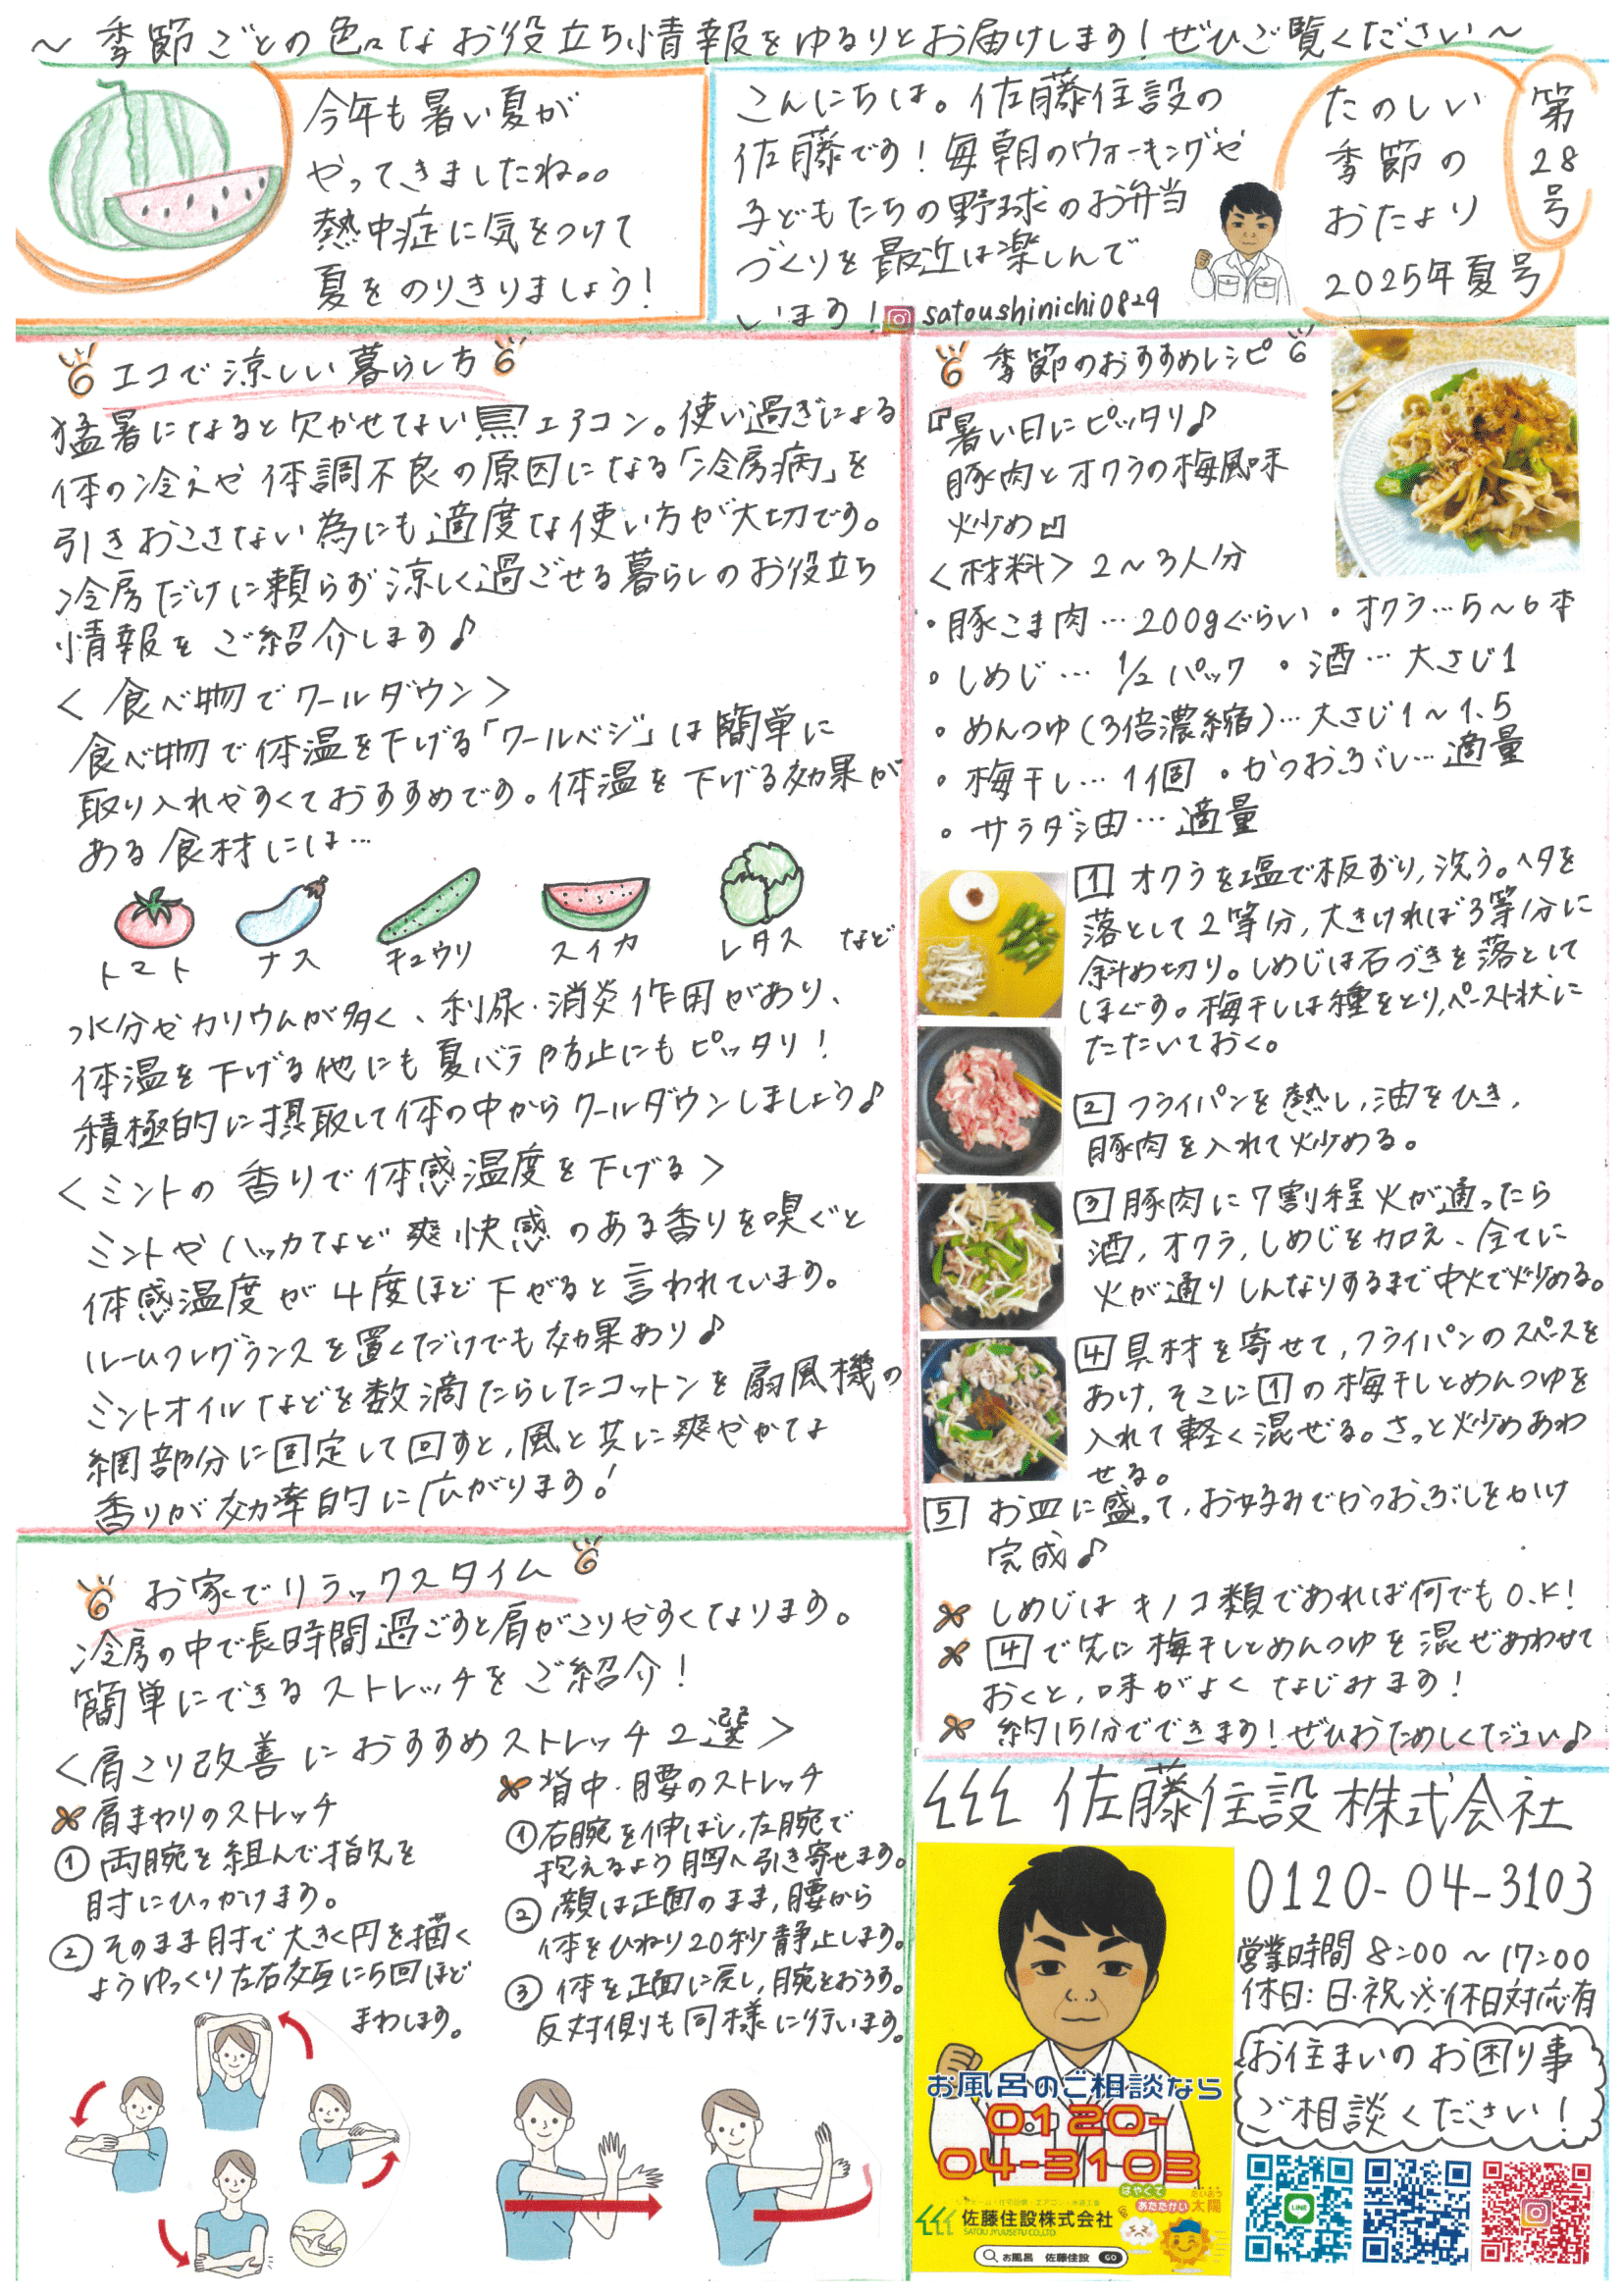 ～季節ごとの色々なお役立ち情報をゆるりとお届けします！ぜひご覧ください～
今年も暑い夏が
やってきましたね。。
熱中症に気をつけて
夏をのりきりましょう！
こんにちは。佐藤住設の
佐藤です！毎朝のウォーキングや
子どもたちの野球のお弁当
づくりを最近は楽しんで
います！satoushinichi0829
たのしい
季節の
おたより
2025年夏号
第
28
号
エコで涼しい暮らし方
猛暑になると欠かせてない エアコン。使い過ぎによる
体の冷えや体調不良の原因になる「冷房病」を
引きおこさない為にも適度な使い方が大切です。
冷房だけに頼らず涼しく過ごせる暮らしのお役立ち
情報をご紹介します♪
＜食べ物でクールダウン＞
食べ物で体温を下げる「クールベジ」は簡単に
取り入れやすくておすすめです。体温を下げる効果が
ある食材には…
トマト ナス キュウリ スイカ レタス など
水分やカリウムが多く、利尿・消炎作用があり、
体温を下げる他にも夏バテ防止にもピッタリ！
積極的に摂取して体の中からクールダウンしましょう♪
＜ミントの香りで体感温度を下げる＞
ミントやハッカなど爽快感のある香りを嗅ぐと
体感温度が4度ほど下がると言われています。
ルームフレグランスを置くだけでも効果あり♪
ミントオイルなどを数滴たらしたコットンを扇風機の
網部分に固定して回すと,風と共に爽やかな
香りが効率的に広がります！
季節のおすすめレシピ
『暑い日にピッタリ♪
豚肉とオクラの梅風味
炒め』
＜材料＞2～3人分
・豚こま肉…200gぐらい ・オクラ…5～6本
・しめじ…1/2パック ・酒…大さじ1
・めんつゆ(3倍濃縮)…大さじ1～1.5
・梅干し…1個 ・かつおぶし…適量
・サラダ油…適量
1 オクラを塩で板ずり,洗う。ヘタを
落として2等分,大きければ3等分に
斜め切り。しめじは石づきを落として
ほぐす。梅干しは種をとり,ペースト状に
たたいておく。
2 フライパンを熱し,油をひき,
豚肉を入れて炒める。
3 豚肉に7割程火が通ったら
酒,オクラ,しめじを加え、全てに
火が通りしんなりするまで中火で炒める。
4 具材を寄せて,フライパンのスペースを
あけ,そこに1の梅干しとめんつゆを
入れて軽く混ぜる。さっと炒めあわ
せる。
5 お皿に盛って,お好みでかつおぶしをかけ
完成♪
しめじはキノコ類であれば何でもO.K!
4で先に梅干しとめんつゆを混ぜあわせて
おくと,味がよくなじみます！
約15分でできます！ぜひおためしください♪
お家でリラックスタイム
冷房の中で長時間過ごすと肩がこりやすくなります。
簡単にできるストレッチをご紹介！
＜肩こり改善におすすめストレッチ2選＞
肩まわりのストレッチ
①両腕を組んで指先を
肘にひっかけます。
②そのまま肘で大きく円を描く
ようゆっくり左右交互に5回ほど
まわします。
背中・腰のストレッチ
①右腕を伸ばし,左腕で
抱えるよう胸へ引き寄せます。
②顔は正面のまま,腰から
体をひねり20秒静止します。
③体を正面に戻し,腕をおろす。
反対側も同様に行います。
佐藤住設株式会社
0120-04-3103
営業時間 8:00～17:00
休日:日・祝 ※休日対応有
お住まいのお困り事
ご相談ください！
お風呂のご相談なら
0120-
04-3103
はやくて
あたたかい
たいよう
太陽
佐藤住設株式会社
SATOU JYUUSETU CO.,LTD.
お風呂 佐藤住設 GO
LINE